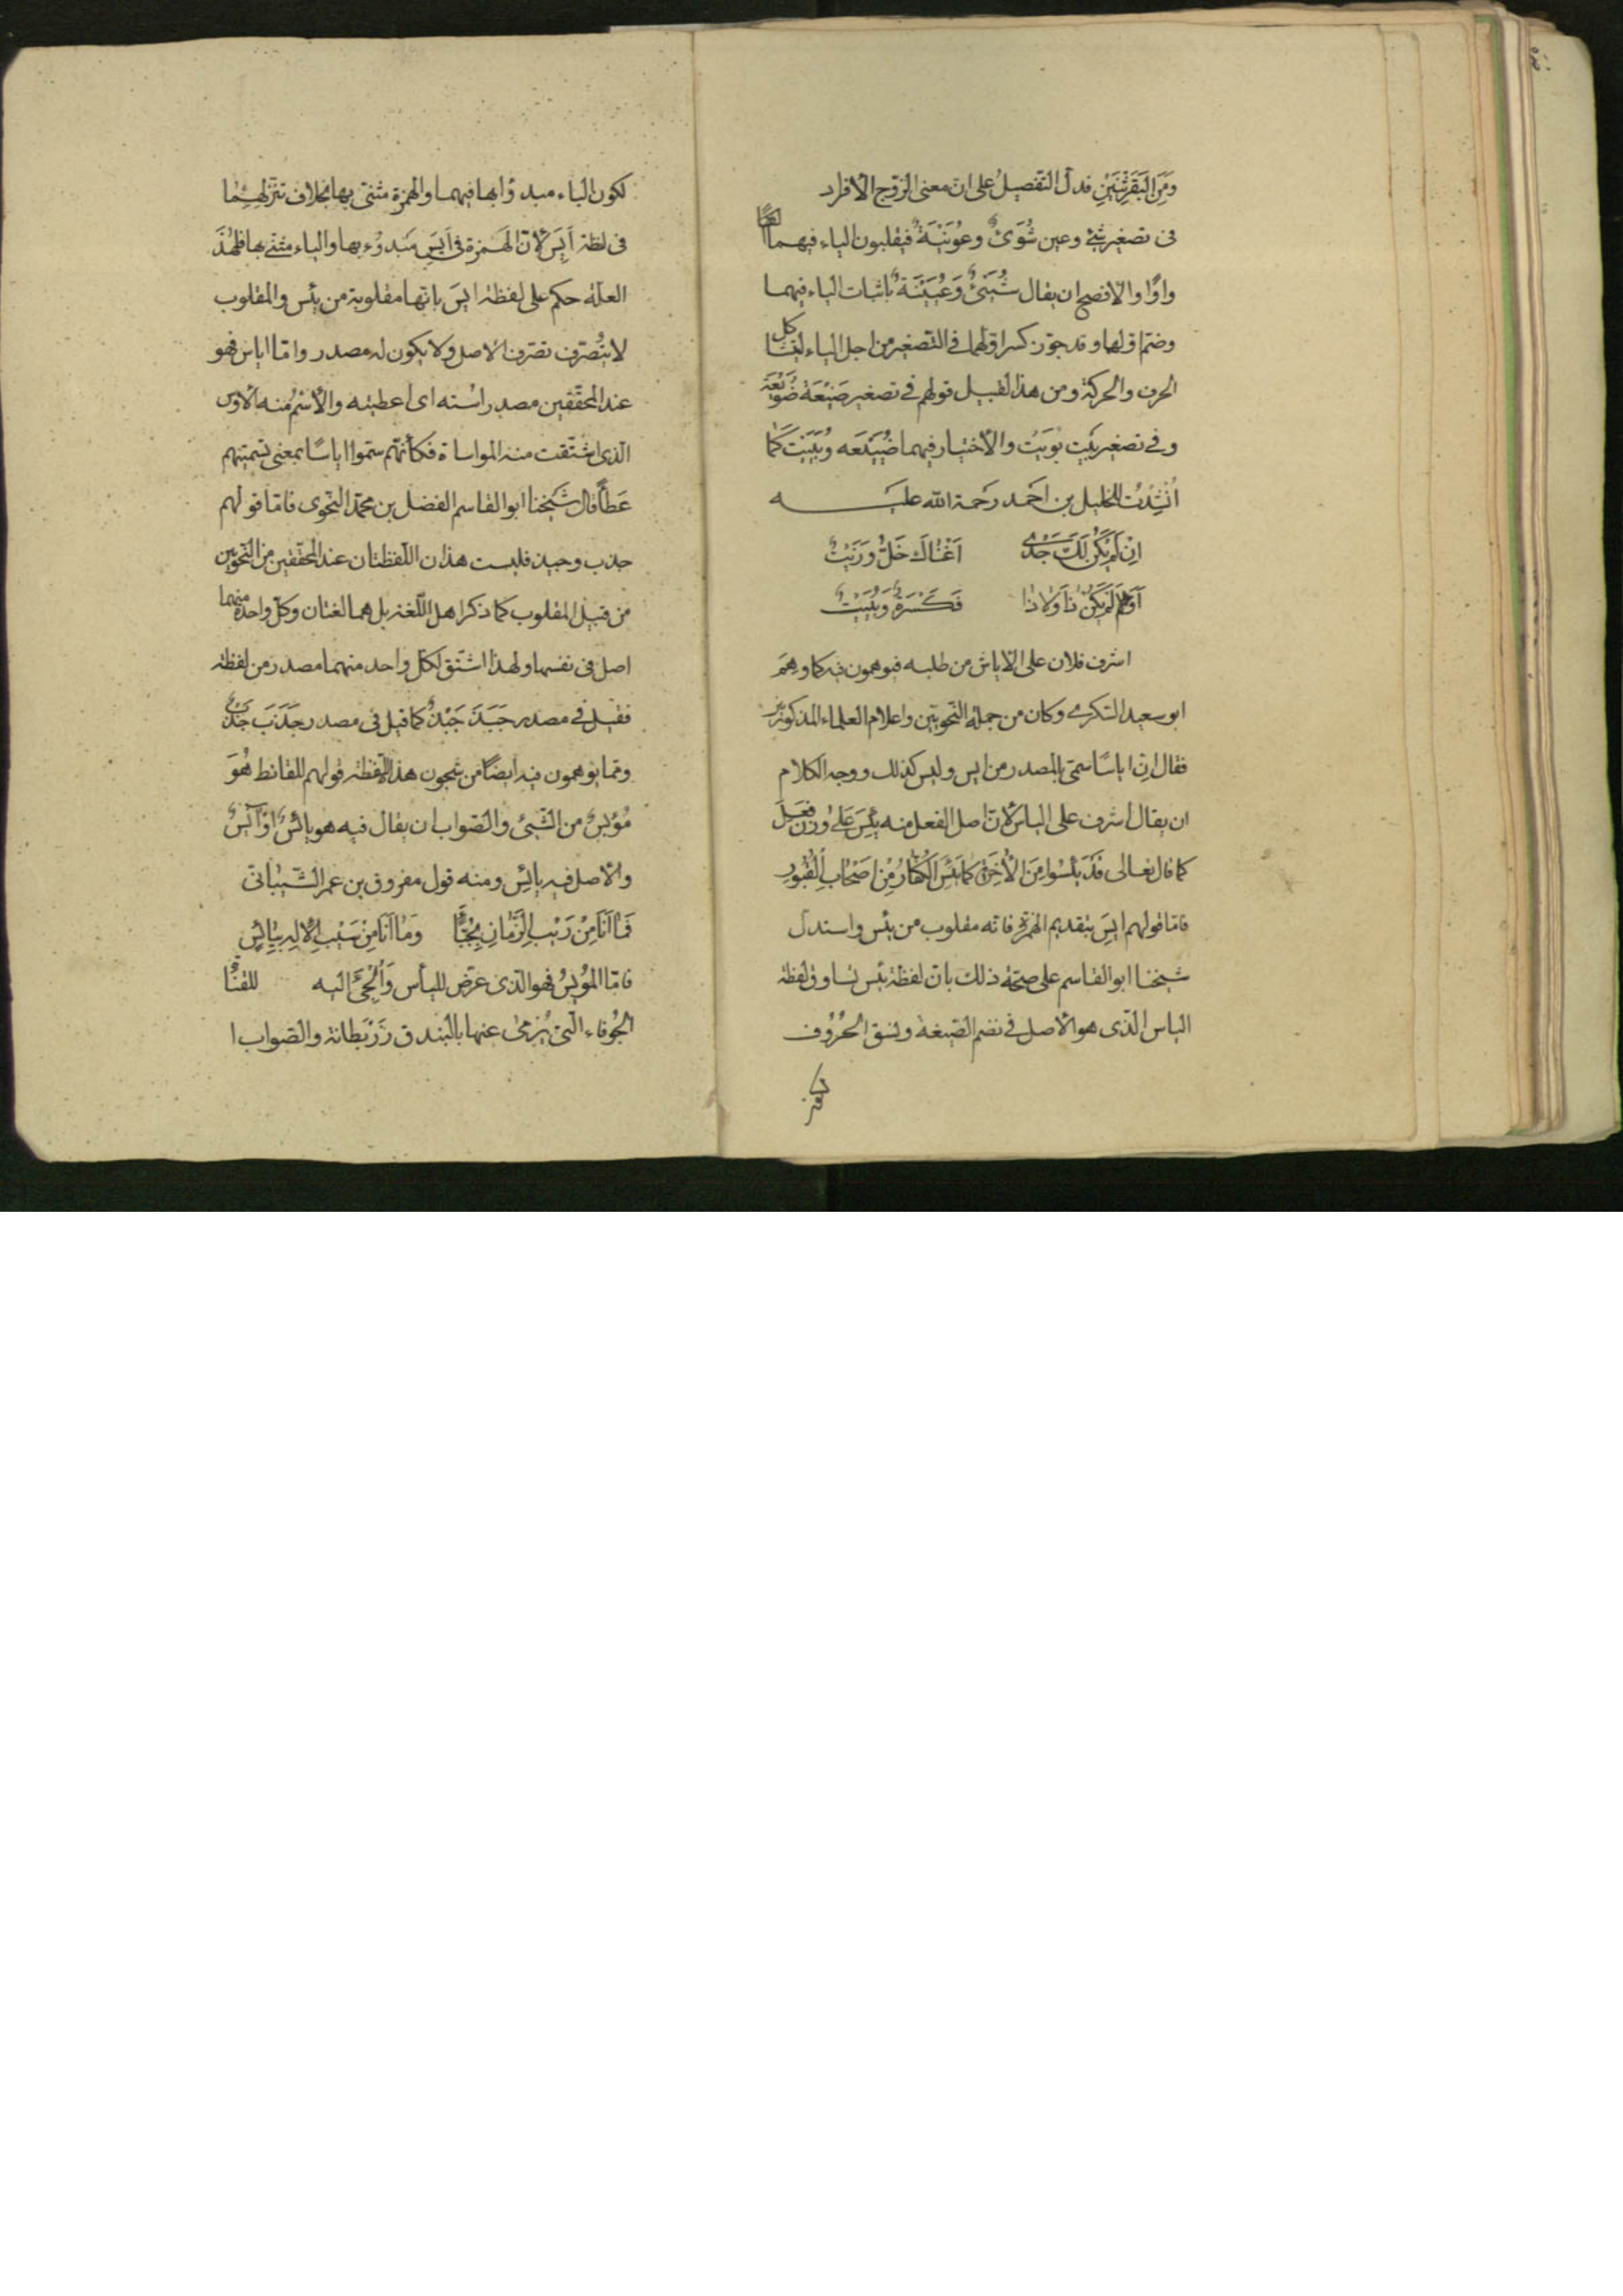 ومَنِ البَقَرِ اثْنَيْنِ فدلّ التّفصيلُ على انّ معنى الزّوج الافراد
فى تصغير شئ وعين شُوَىٌّ وعُوَيْنَةٌ فيقلبون الياء فيهما
واوًا والافصح ان يقال شُيَيْءٌ وَعُيَيْنَةٌ باثبات الياء فيهما
وضمّ اوّلها وقد جوّز كسر اوّلهما فى التّصغير من اجل الياء ليتشاكل
الحرف والحركة ومن هذا القبيل قولهم فى تصغير ضَيْعَة ضُوَيْعَة
وفى تصغير بَيْت بُوَيْت والاختيار فيهما ضُيَيْعَه وبُيَيْت كمَا
اُنْشِدْتُ للخليل بن احَمد رَحمة الله عليه
اِنْ لَمْ يَكُنْ لَكَ جَدْىٌ اَغْنٰاكَ خَلٌّ وَزَيْتٌ
اَوْ لَمْ يَكُنْ ذٰا وَلٰا ذٰا فَكَسْرَةٌ وَبُيَيْتٌ
اشرف فلان على الاياس من طلبه فيوهمون فيه كما وهِمَ
ابو سعيد السّكرى وكان من جملة النّحويّين واعلام العلماء المذكورين
فقال انّ اياسًا سمّى بالمصدر من ايس وليس كذلك ووجه الكلام
ان يقال اشرف على الياس لانّ اصل الفعل منه يئِسَ عَلى وزن فَعِلَ
كما قال تعالى قَدْ يَئِسُوا مِنَ الْآخِرَةِ كمَا يَئِسَ الْكُفّارُ مِنْ اَصْحٰابِ الْقُبُورِ
فامّا قولهم ايِسَ بتقديم الهمزة فانّه مقلوب من يئس واستدلّ
شيخنا ابو القاسم على صحّة ذلك بانّ لفظة يئس تساوق لفظة
الياس الّذى هو الاصل فى نضم الصّيغة ونسق الحُرُوف
لكون الياء مبدوًّا بها فيهما والهمزة مثنّى بها بخلاف تنزّلهِمٰا
فى لظة اَيِسَ لانّ الهَمزة فى اَيِسَ مَبدوُء بها والياء مثنّى بها فلهٰذِ
العلّة حكم على لفظة ايسَ بانّها مقلوبة من يئس والمقلوب
لا يتُصرّف تصرّف الاصل ولا يكون له مصدر وامّا اياس فهو
عند المحقّقين مصدر اسُته اى اعطيته والاسْمُ منه الاوس
الّذى اشتقت منه المواساة فكأنّهم سمّوا اياسًا بمعنى تسميتهم
عَطاءً قال شَيخنا ابو القاسم الفضل بن محمّد النّحوى فامّا قولهم
جذب وجبذ فليست هذان اللّفظتان عند المحقّقين من النّحويّين
من قبيل المقلوب كما ذكر اهل اللّغة بل هما لغتان وكلّ واحدة منهما
اصل فى نفسها ولهذا اشتقّ لكلّ واحد منهما مصدر من لفظة
فقيل فى مصدر جَبَذَ جَبْذٌ كما قيل فى مصدر جَذَبَ جَذْبٌ
وممّا يوهمون فيه ايضًا من شجون هذا اللّفظة قولهم للقانط هُوَ
مُؤْيِسٌ من الشّيئ والصّواب ان يقال فيه هو يائسٌ اوْ آيسٌ
والاصل فيه يائِس ومنه قول مفروق بن عمر الشّيبانىّ
فَمٰا اَنَا مِنْ رَيْبِ الزَّمٰانِ بِجُبَّاءٍ وَمٰا اَنَا مِنْ سَيْبِ الْاِلٰهِ بِيٰائِسٍ
فامّا المُؤيِسُ فهو الّذى عَرّضَ لليأس وَاُلجِئَ اليه للقنٰاة
الجُوفاء الّتى يُرْمىٰ عنها بالبندق زَرْبَطانة والصّواب ا